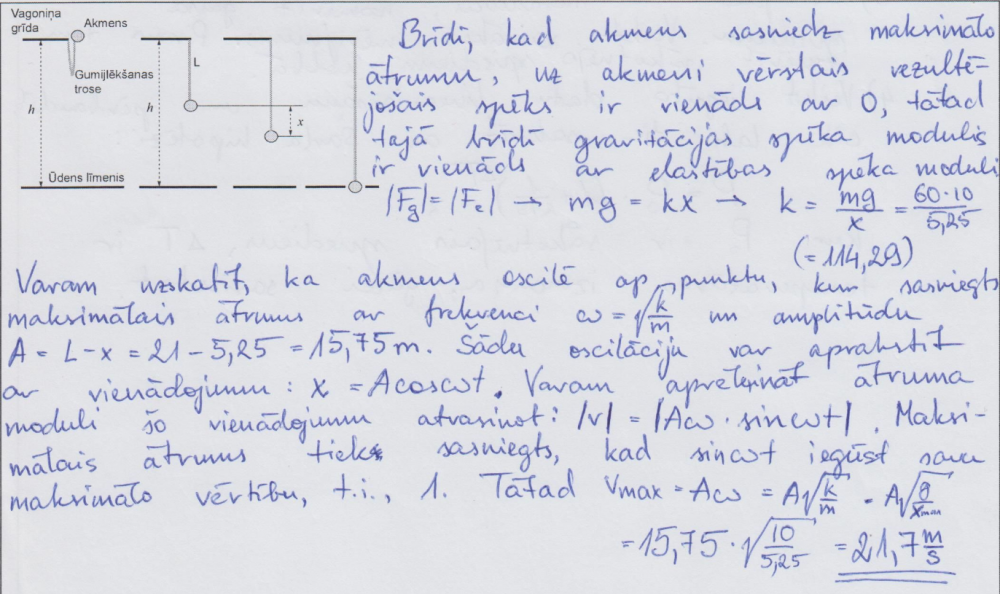 Vagoniņa
grīda
Akmens
Gumijlēkšanas
trose
h
h
L
x
Ūdens līmenis
Brīdī, kad akmens sasniedz maksimālo
ātrumu, uz akmeni vērstais rezultē-
jošais spēks ir vienāds ar 0, tātad
tajā brīdī gravitācijas spēka modulis
ir vienāds ar elastības spēka moduli
|Fg| = |Fe| → mg = kx → k = mg/x = 60·10/5,25
(= 114,29)
Varam uzskatīt, ka akmens oscilē ap punktu, kur sasniegts
maksimālais ātrums ar frekvenci ω = √k/m un amplitūdu
A = L-x = 21 - 5,25 = 15,75 m. Šādu oscilāciju var aprakstīt
ar vienādojumu: x = Acosωt. Varam aprēķināt ātruma
moduli šo vienādojumu atvasinot: |v| = |Aω · sinωt|. Maksi-
mālais ātrums tiek sasniegts, kad sinωt iegūst savu
maksimālo vērtību, t.i., 1. Tātad Vmax = Aω = A√k/m = A√g/xmax
= 15,75 · √10/5,25 = 21,7 m/s